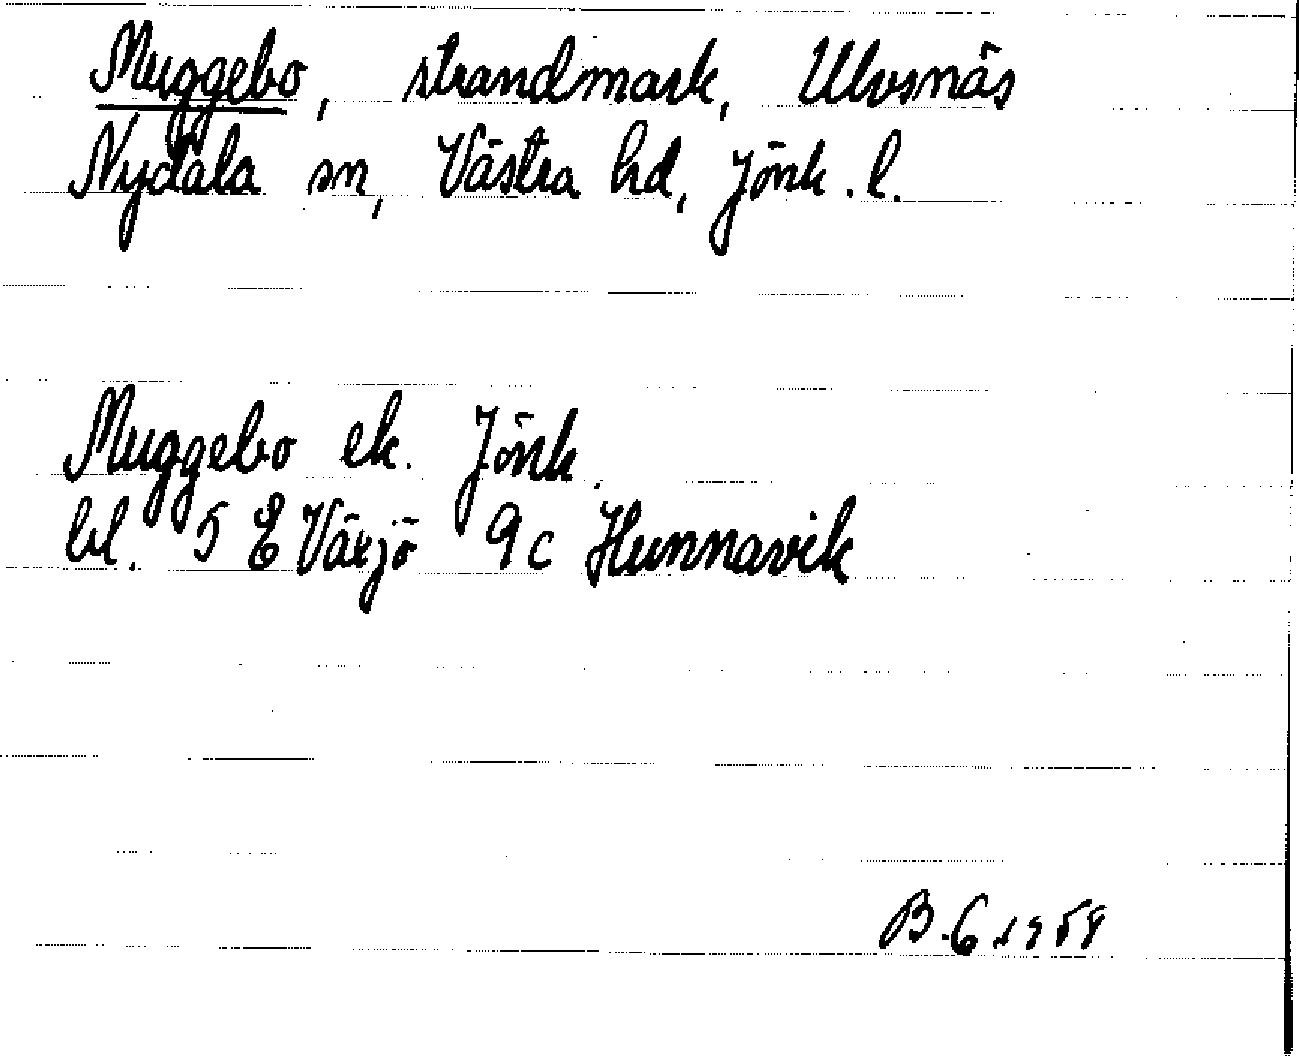 Muggebo, strandmark, Ulvsnäs
Nydala sn, Västra hd, Jönk. l.
Muggebo ek. Jönk.
bl. 5 E Växjö 9c Hunnavik
B.G. 1958